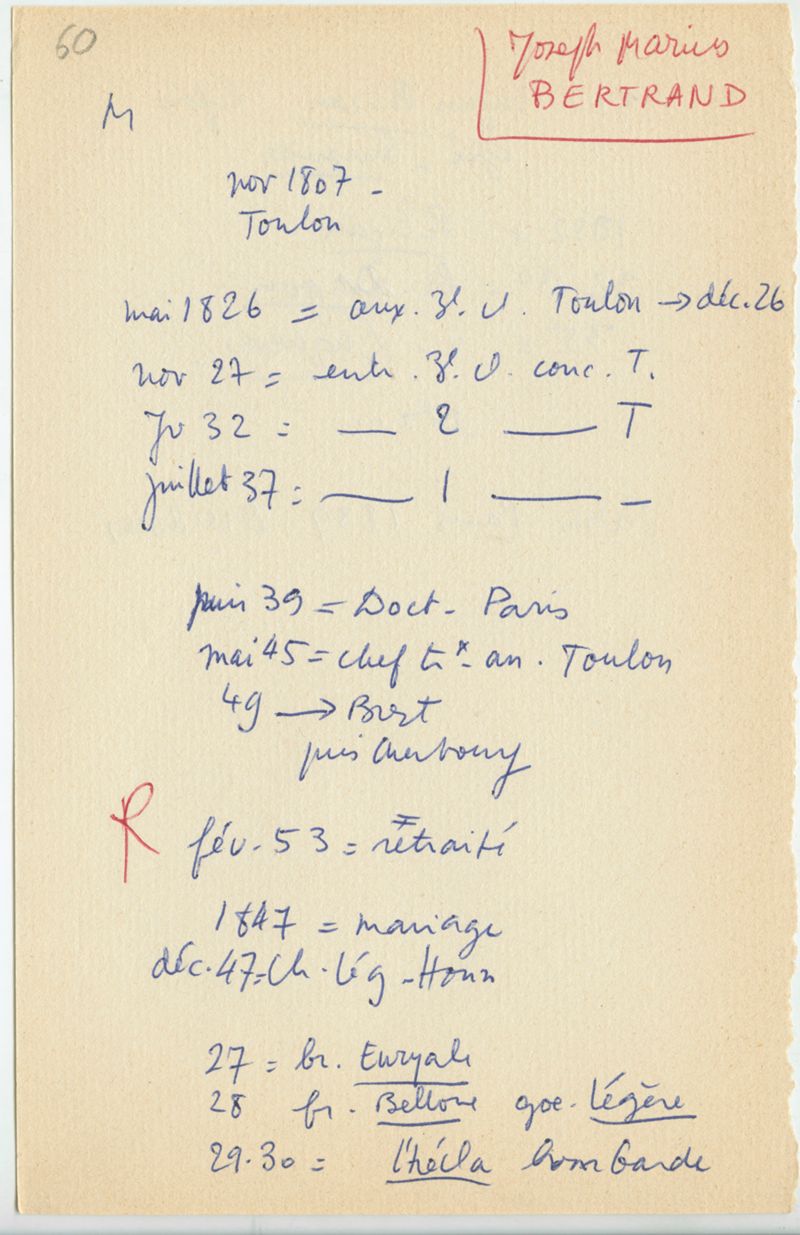 60
Joseph Marius
BERTRAND
M
nov 1807 -
Toulon
mai 1826 = aux. 3e. cl. Toulon → déc. 26
nov 27 = entr. 3e. cl. conc. T.
Jv 32 = — 2 — T
juillet 37 = — 1 — –
juin 39 = Doct - Paris
mai 45 = chef trx - an. Toulon
49 → Brest
puis Cherbourg
R
fév. 53 = retraité
1847 = mariage
déc. 47 = Ch. Lég - Honn
27 = br. Euryale
28 fr. Bellone goe. Légère
29.30 = l'hécla bombarde